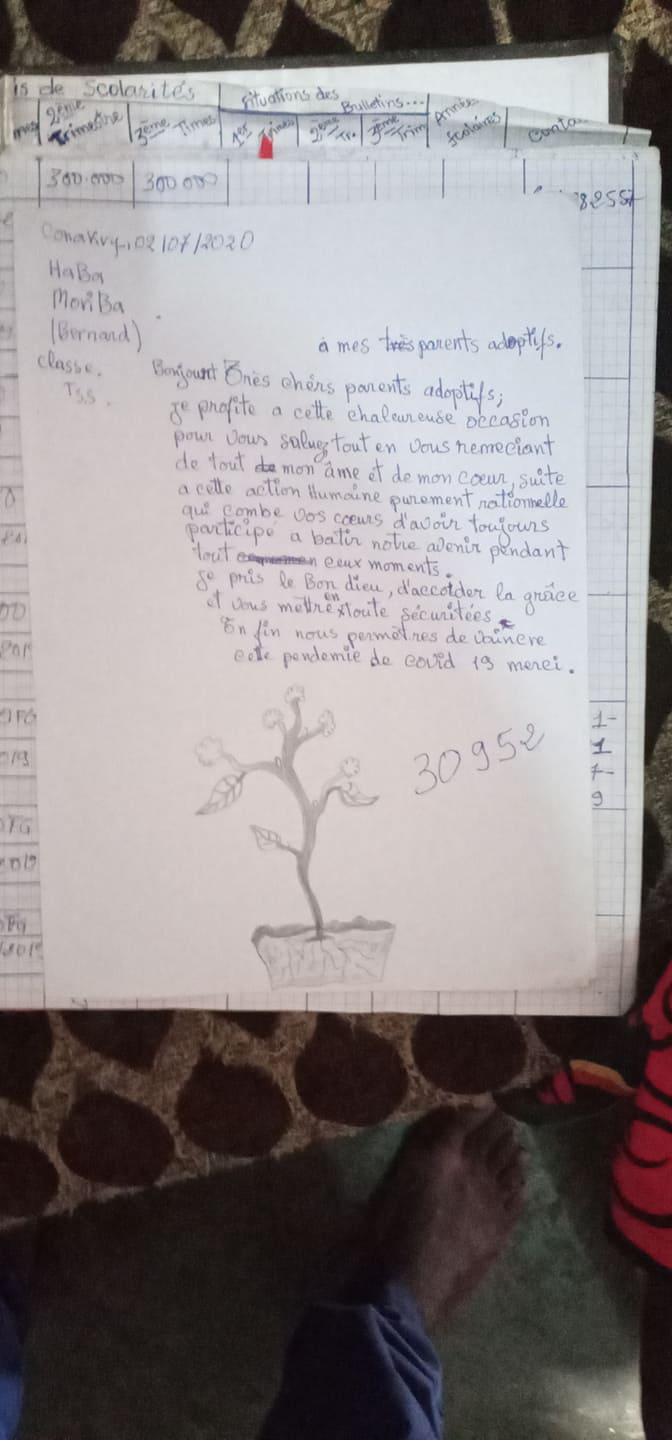 is de Scolarités
situations des
Bulletins...
2ème
Trimestre
3ème Times
1er
2ème Tr.
3ème
Trim
Année
scolaires
300.000
300 000
8255
Conakry, 02/07/2020
HaBa
MoriBa
(Bernard)
à mes très parents adoptifs.
classe.
TSS.
Bonjour Très chérs parents adoptifs;
je profite a cette chaleureuse occasion
pour vous saluez tout en vous remeciant
de tout de mon âme et de mon cœur, suite
a cette action Humaine purement rationnelle
qui combe vos cœurs d'avoir toujours
participé a batir notre avenir pendant
tout ceux moments.
Je pris le Bon dieu, d'accorder la grâce
et vous mettre en toute sécuritées
En fin nous permetres de vaincre
cette pendemie de covid 19 merci.
30952
1-
1
7-
9